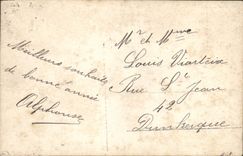 Meilleurs souhaits
de bonne année
Alphonse
Mr et Mme
Louis
Rue St Jean
42
Dunkerque